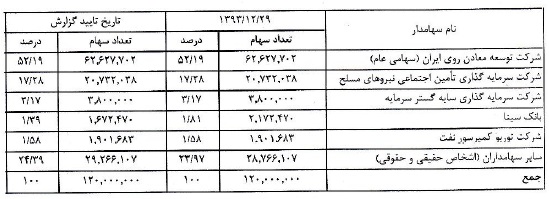 نام سهامدار ۱۳۹۳/۱۲/۲۹ تاریخ تایید گزارش
تعداد سهام درصد تعداد سهام درصد
شرکت توسعه معادن روی ایران (سهامی عام) ۶۲,۶۲۷,۷۰۲ ۵۲/۱۹ ۶۲,۶۲۷,۷۰۲ ۵۲/۱۹
شرکت سرمایه گذاری تأمین اجتماعی نیروهای مسلح ۲۰,۷۳۲,۰۳۸ ۱۷/۲۸ ۲۰,۷۳۲,۰۳۸ ۱۷/۲۸
شرکت سرمایه گذاری سایه گستر سرمایه ۳,۸۰۰,۰۰۰ ۳/۱۷ ۳,۸۰۰,۰۰۰ ۳/۱۷
بانک سینا ۲,۱۷۲,۴۷۰ ۱/۸۱ ۱,۶۷۲,۴۷۰ ۱/۳۹
شرکت توربو کمپرسور نفت ۱,۹۰۱,۶۸۳ ۱/۵۸ ۱,۹۰۱,۶۸۳ ۱/۵۸
سایر سهامداران (اشخاص حقیقی و حقوقی) ۲۸,۷۶۶,۱۰۷ ۲۳/۹۷ ۲۹,۲۶۶,۱۰۷ ۲۴/۳۹
جمع ۱۲۰,۰۰۰,۰۰۰ ۱۰۰ ۱۲۰,۰۰۰,۰۰۰ ۱۰۰